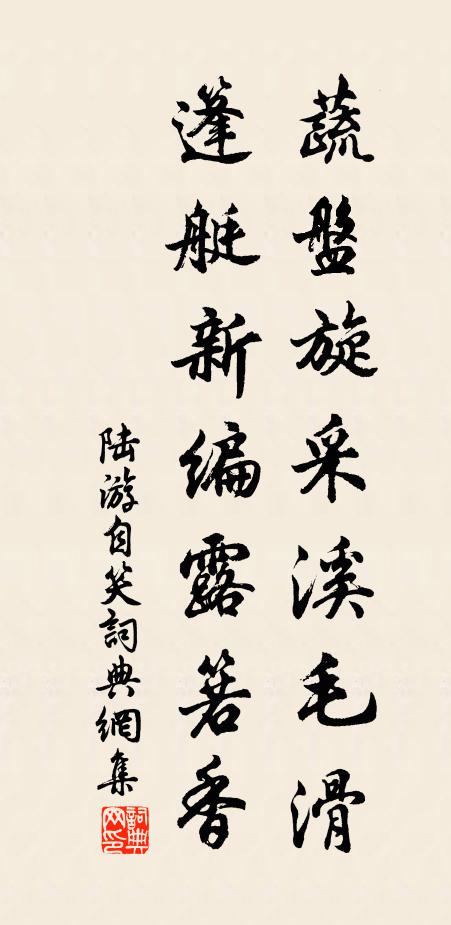 蔬盤旋采溪毛滑
篷艇新編露箬香
陆游自笑詞典網集
詞典網印